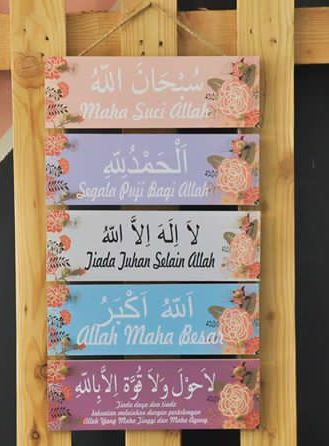 سُبْحَانَ اللّٰهِ
Maha Suci Allah
اَلْحَمْدُلِلّٰهِ
Segala Puji Bagi Allah
لاَ اِلٰهَ اِلاَّ اللّٰهُ
Tiada Tuhan Selain Allah
اَللّٰهُ اَكْبَرُ
Allah Maha Besar
لاَحَوْلَ وَلاَ قُوَّةَ اِلاَّبِاللّٰهِ
Tiada daya dan tiada
kekuatan melainkan dengan pertolongan
Allah Yang Maha Tinggi dan Maha Agung